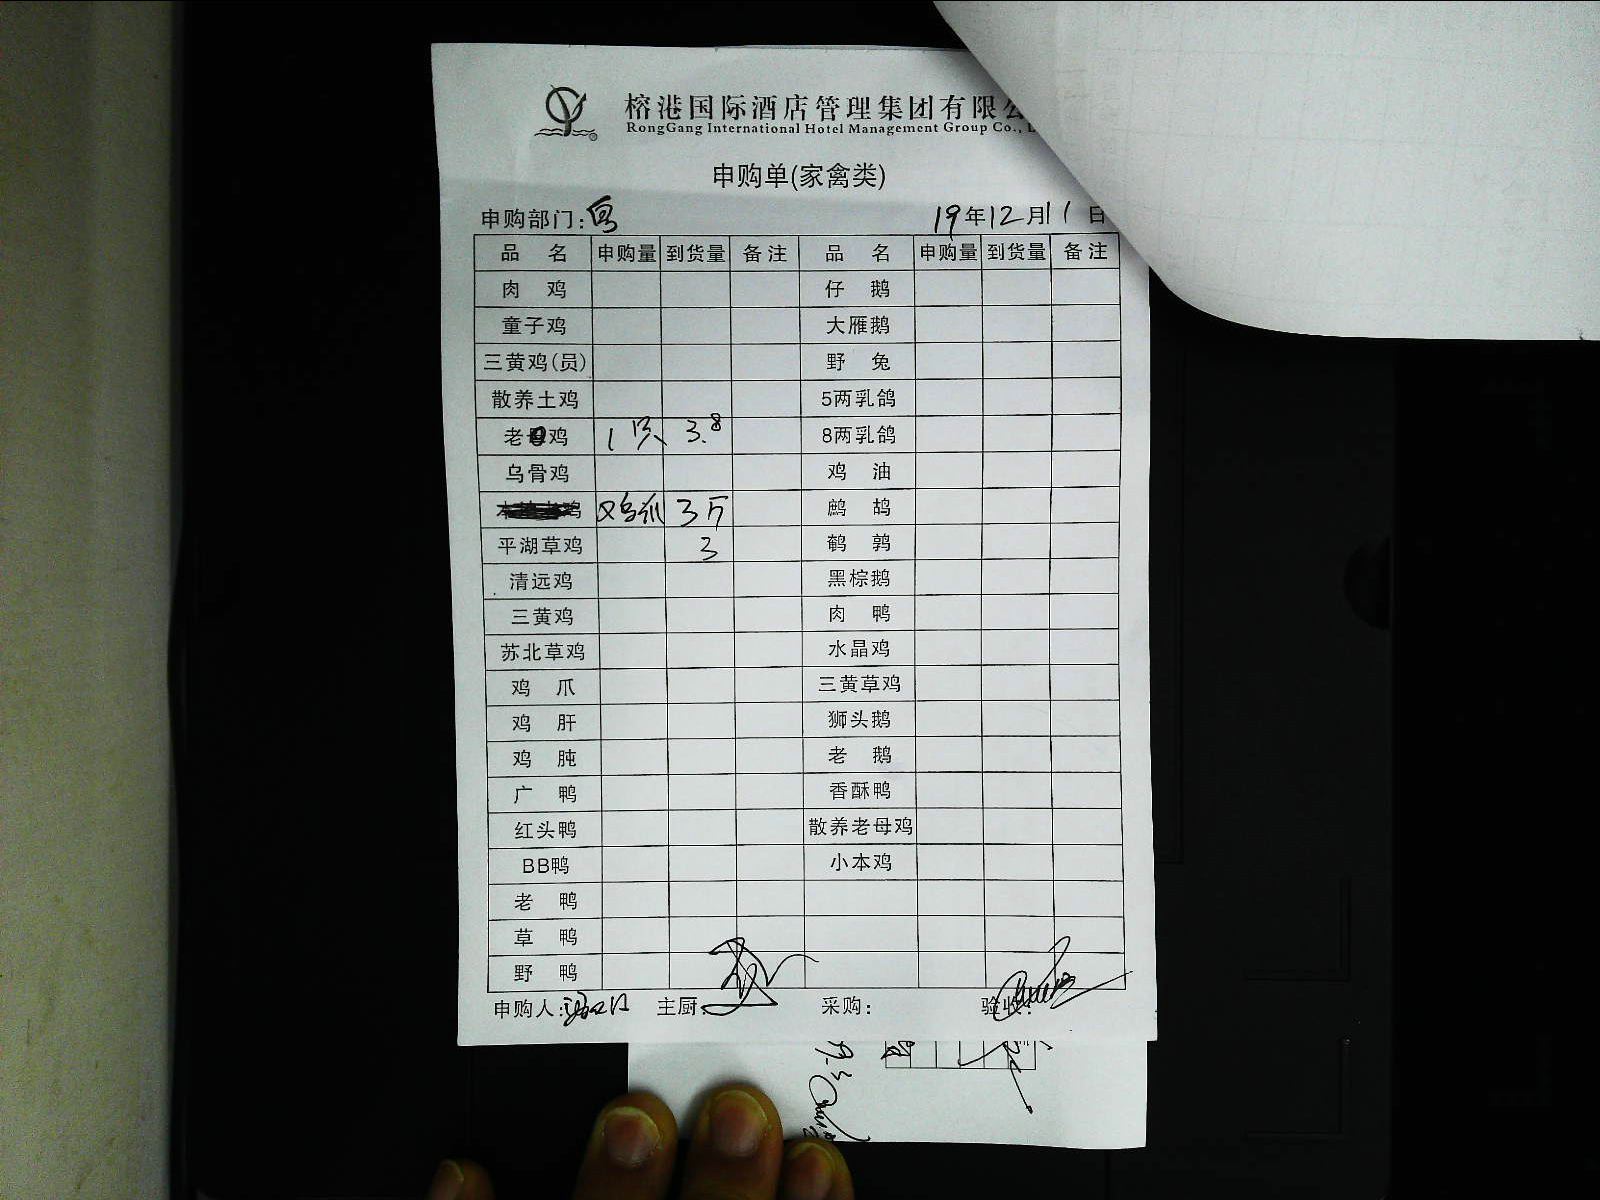 榕港国际酒店管理集团有限公
RongGang International Hotel Management Group Co., L
申购单(家禽类)
申购部门: 19年12月11日
品 名 申购量 到货量 备注 品 名 申购量 到货量 备注
肉 鸡 仔 鹅
童子鸡 大雁鹅
三黄鸡(员) 野 兔
散养土鸡 5两乳鸽
老母鸡 1只 3.8 8两乳鸽
乌骨鸡 鸡 油
鸡爪 3斤 鹧 鸪
平湖草鸡 3 鹌 鹑
清远鸡 黑棕鹅
三黄鸡 肉 鸭
苏北草鸡 水晶鸡
鸡 爪 三黄草鸡
鸡 肝 狮头鹅
鸡 肫 老 鹅
广 鸭 香酥鸭
红头鸭 散养老母鸡
BB鸭 小本鸡
老 鸭
草 鸭
野 鸭
申购人: 主厨: 采购: 验收: